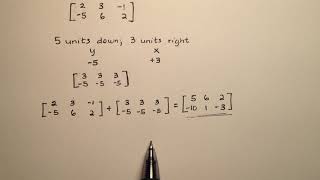 [ 2 3 -1 ]
[ -5 6 2 ]
5 units down, 3 units right
y x
-5 +3
[ 3 3 3 ]
[ -5 -5 -5 ]
[ 2 3 -1 ] + [ 3 3 3 ] = [ 5 6 2 ]
[ -5 6 2 ] [ -5 -5 -5 ] [ -10 1 -3 ]